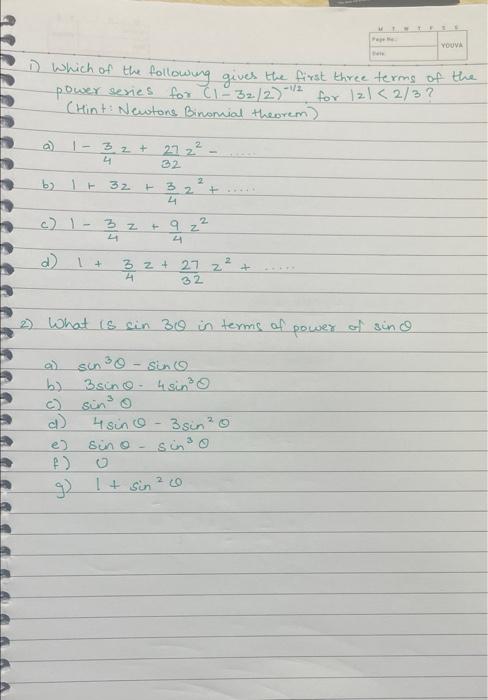 M T W T F S S
Page No.:
YOUVA
Date:
1) Which of the following gives the first three terms of the
power series for (1-3z/2)^-1/2 for |z| < 2/3?
(Hint: Newtons Binomial theorem)
a) 1 - 3/4 z + 27/32 z² - .....
b) 1 + 3z + 3/4 z² + .....
c) 1 - 3/4 z + 9/4 z²
d) 1 + 3/4 z + 27/32 z² + .....
2) What is sin 3θ in terms of power of sin θ
a) sin³θ - sin θ
b) 3sin θ - 4sin³θ
c) sin³θ
d) 4sin θ - 3sin²θ
e) sin θ - sin³θ
f) 0
g) 1 + sin²θ